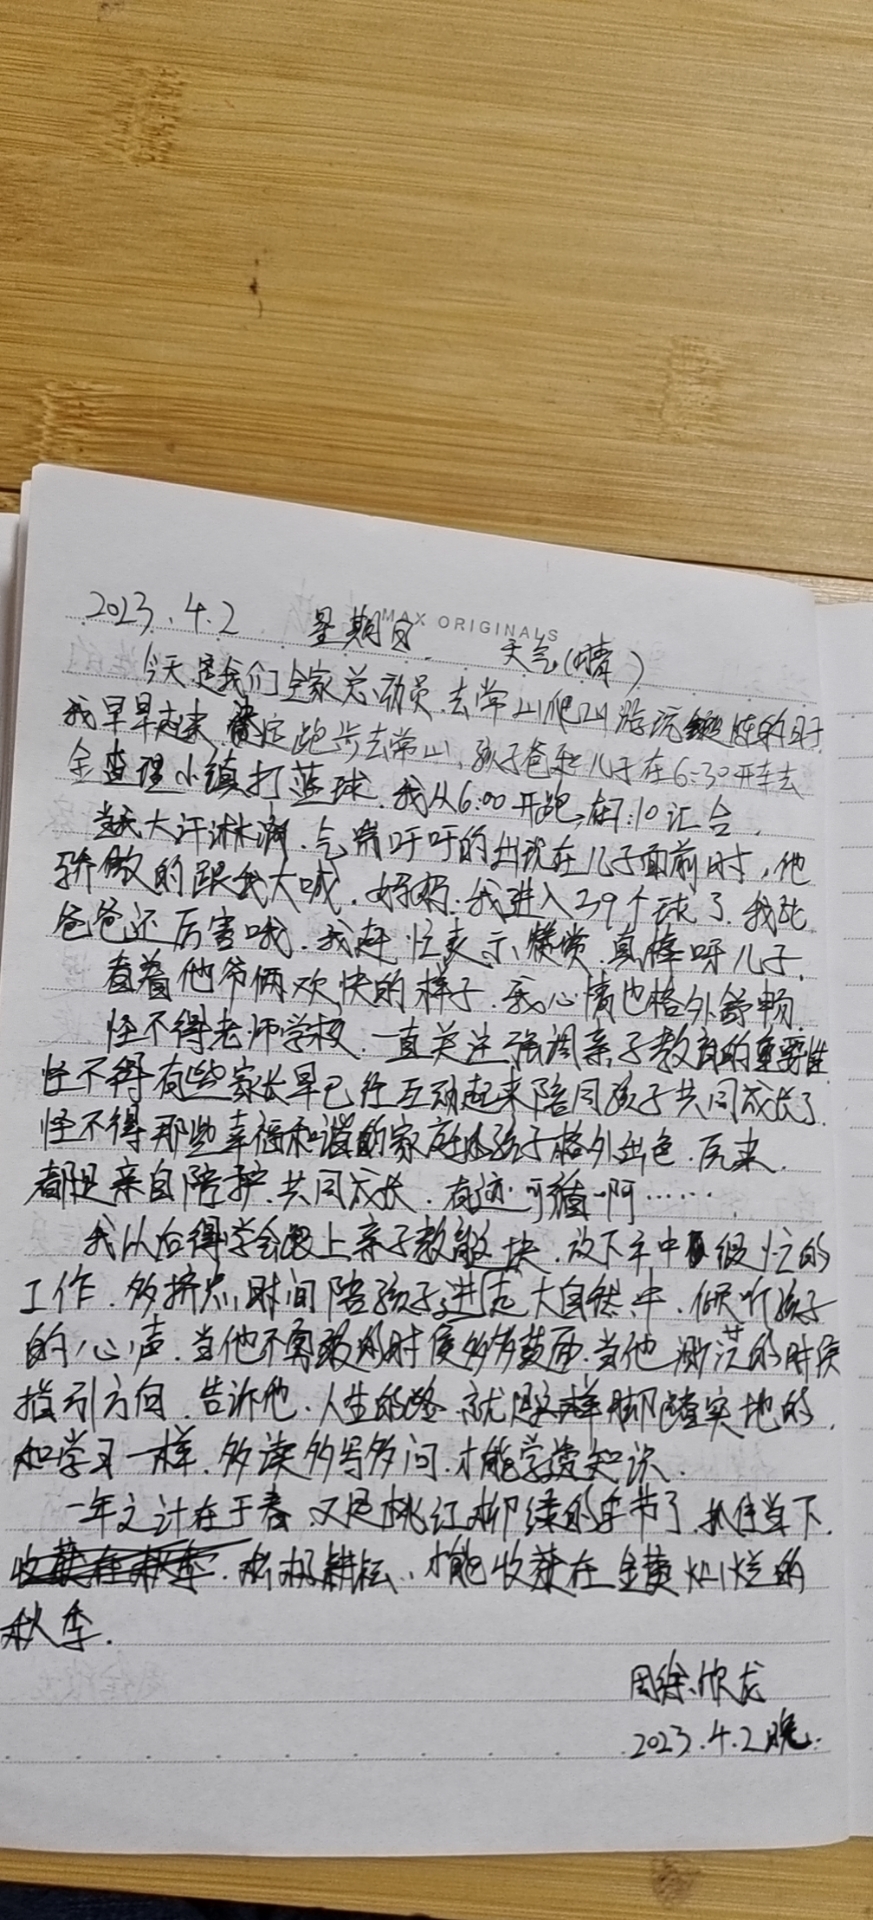 2023.4.2 星期日 天气(晴)
MAX ORIGINALS
今天是我们全家总动员.去常山爬山游玩的日子
我早早起来 决定跑步去常山,孩子爸和儿子在6:30开车去
金查理小镇打蓝球.我从6:00开跑,在7:10汇合.
当我大汗淋漓.气喘吁吁的出现在儿子面前时,他
骄傲的跟我大喊.妈妈.我进入29个球了.我比
爸爸还厉害哦.我赶忙表示赞赏.真棒呀儿子.
看着他爷俩欢快的样子.我心情也格外舒畅
怪不得老师学校.一直关注强调亲子教育的重要性
怪不得有些家长早已行互动起来陪同孩子共同成长了.
怪不得那些幸福和谐的家庭孩子格外出色.原来.
都是亲自陪护.共同成长.有迹可循啊……
我以后得学会跟上亲子教育这块.放下手中忙的
工作.多挤点时间陪孩子进走大自然中.倾听孩子
的心声.当他不勇敢的时候多多鼓励.当他迷茫的时候
指引方向.告诉他.人生的路.就是这样脚踏实地的.
和学习一样.多读多写多问.才能学透知识.
一年之计在于春.又是桃红柳绿的季节了.抓住当下.
积极耕耘.才能收获在金黄灿烂的
秋季.
周徐欣龙
2023.4.2晚.